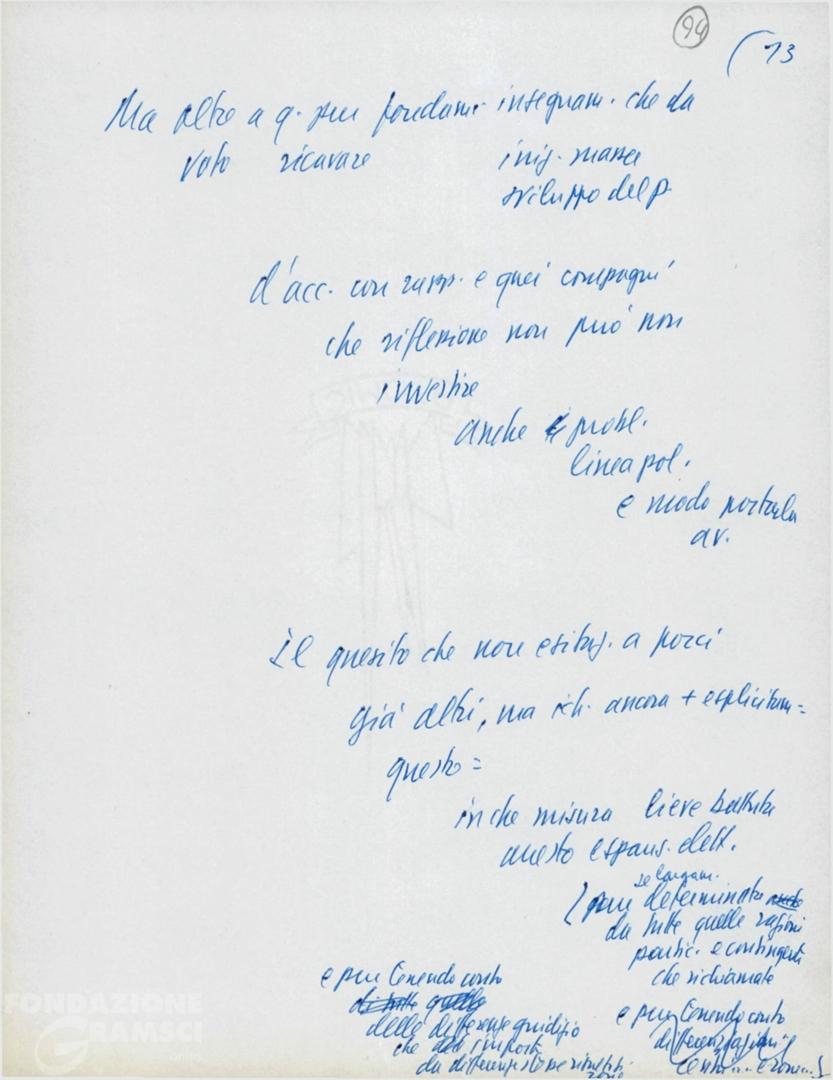 94
( 13
Ma oltre a q. pur fondam. insegnam. che da
voto ricavare iniz. massa
sviluppo del p.
d'acc. con rapp. e quei compagni
che riflessione non può non
investire
anche probl.
linea pol.
e modo portarla
av.
Il quesito che non esitas. a porci
già altri, ma ancora + esplicitam=
questo =
in che misura lieve battuta
questo espans. elett.
se largam.
( pur determinata anche
da tutte quelle ragioni
partic. e contingenti
che richiamate
e pur tenendo conto
di tutte quelle
delle differenze giudizio
che
da differenziazione
e pur tenendo conto
differenziazioni
FONDAZIONE
GRAMSCI